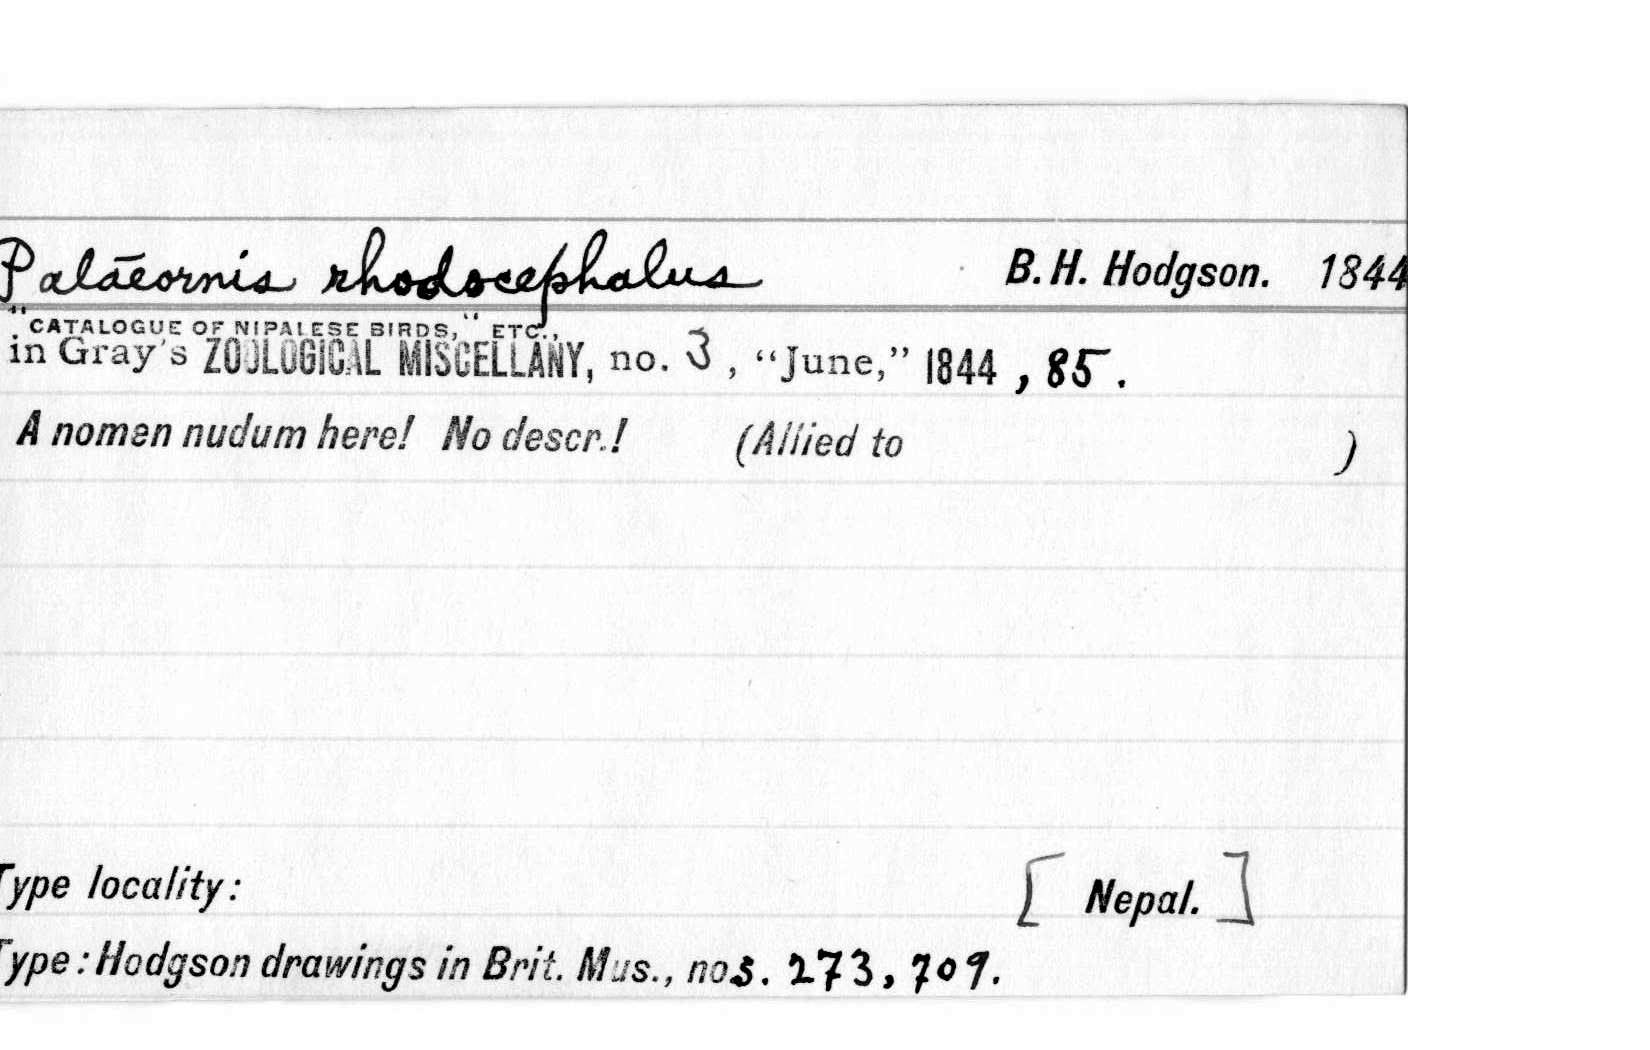 Palāeornis rhodocephalus B. H. Hodgson. 1844
"CATALOGUE OF NIPALESE BIRDS," ETC.,
in Gray's ZOOLOGICAL MISCELLANY, no. 3, "June," 1844, 85.
A nomen nudum here! No descr.! (Allied to )
Type locality: [ Nepal. ]
Type: Hodgson drawings in Brit. Mus., nos. 273, 709.